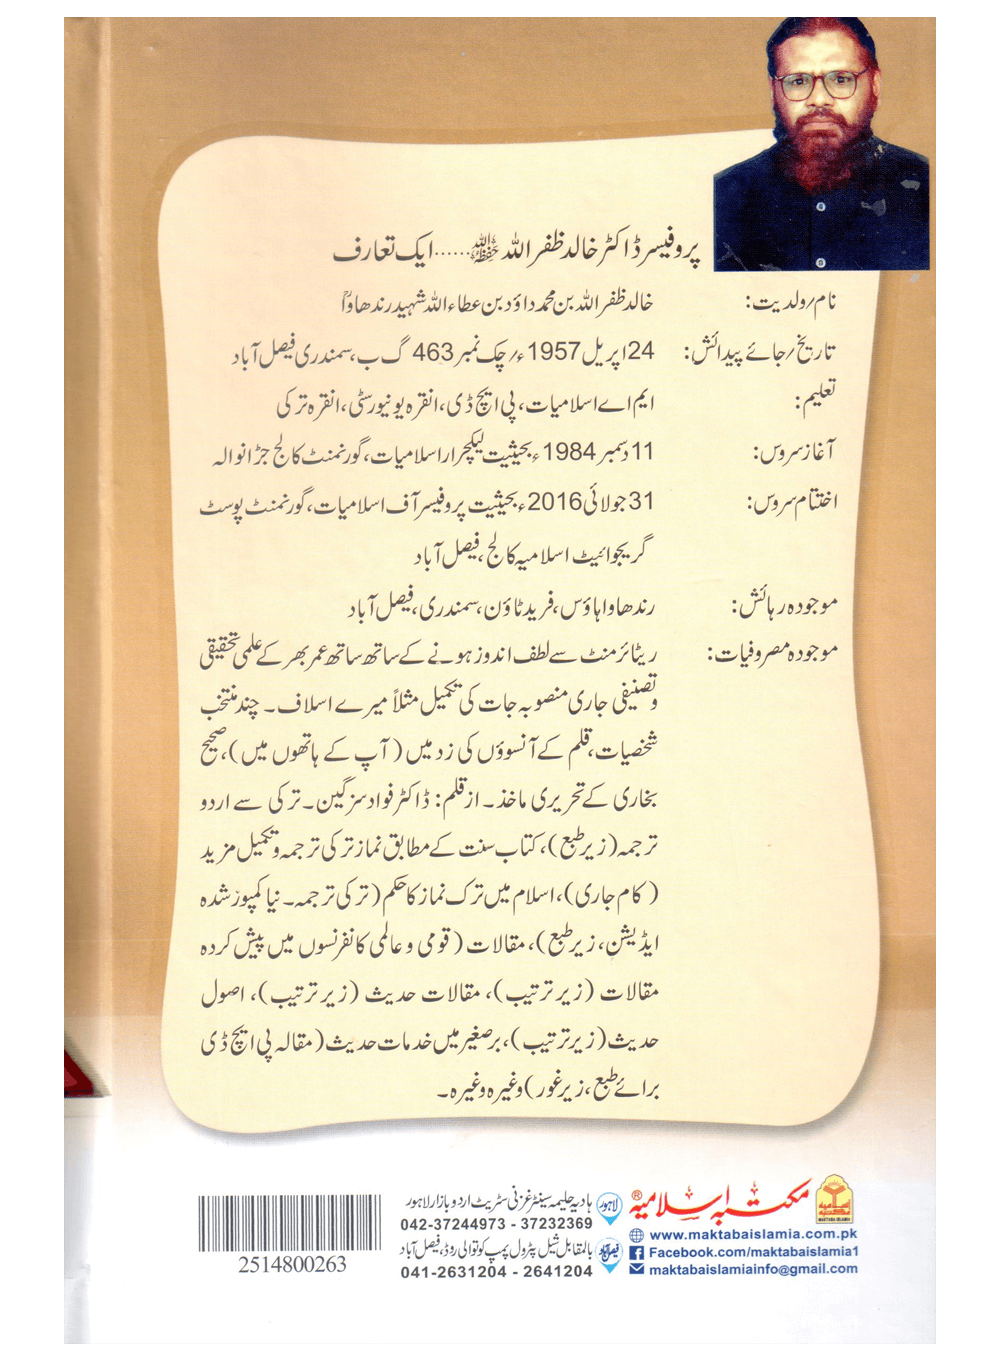 پروفیسر ڈاکٹر خالد ظفر اللہ حفظہ اللہ ...... ایک تعارف
نام/ولدیت: خالد ظفر اللہ بن محمد داؤد بن عطاء اللہ شہید رندھاوا
تاریخ/جائے پیدائش: 24 اپریل 1957ء/ چک نمبر 463 گ ب، سمندری فیصل آباد
تعلیم: ایم اے اسلامیات، پی ایچ ڈی، انقرہ یونیورسٹی، انقرہ ترکی
آغاز سروس: 11 دسمبر 1984ء بحیثیت لیکچرار اسلامیات، گورنمنٹ کالج جڑانوالہ
اختتام سروس: 31 جولائی 2016ء بحیثیت پروفیسر آف اسلامیات، گورنمنٹ پوسٹ
گریجوائیٹ اسلامیہ کالج، فیصل آباد
موجودہ رہائش: رندھاوا ہاؤس، فرید ٹاؤن، سمندری، فیصل آباد
موجودہ مصروفیات: ریٹائرمنٹ سے لطف اندوز ہونے کے ساتھ ساتھ عمر بھر کے علمی تحقیقی
و تصنیفی جاری منصوبہ جات کی تکمیل مثلاً میرے اسلاف۔ چند منتخب
شخصیات، قلم کے آنسوؤں کی زد میں (آپ کے ہاتھوں میں)، صحیح
بخاری کے تحریری ماخذ۔ از قلم: ڈاکٹر فواد سزگین۔ ترکی سے اردو
ترجمہ (زیر طبع)، کتاب سنت کے مطابق نماز ترکی ترجمہ و تکمیل مزید
(کام جاری)، اسلام میں ترک نماز کا حکم (ترکی ترجمہ۔ نیا کمپوز شدہ
ایڈیشن، زیر طبع)، مقالات (قومی و عالمی کانفرنسوں میں پیش کردہ
مقالات (زیر ترتیب)، مقالات حدیث (زیر ترتیب)، اصول
حدیث (زیر ترتیب)، برصغیر میں خدمات حدیث (مقالہ پی ایچ ڈی
برائے طبع، زیر غور) وغیرہ وغیرہ۔
مکتبہ اسلامیہ ®
MAKTABA ISLAMIA
www.maktabaislamia.com.pk
Facebook.com/maktabaislamia1
maktabaislamiainfo@gmail.com
لاہور ہادیہ حلیمہ سینٹر غزنی سٹریٹ اردو بازار لاہور
042-37244973 - 37232369
فیصل آباد بالمقابل شیل پٹرول پمپ کوتوالی روڈ، فیصل آباد
041-2631204 - 2641204
2514800263